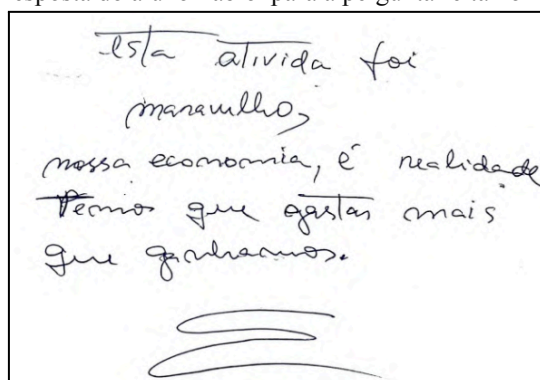 esta ativida foi
maravilho,
nossa economia, é realidade
Temos que gastar mais
que ganhamos.